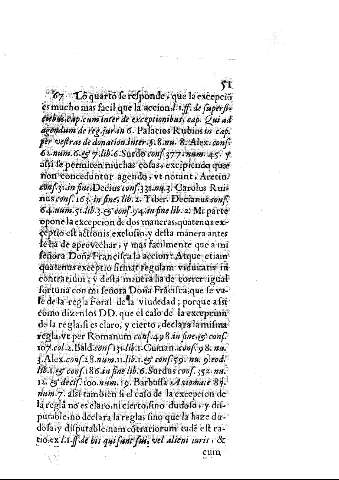 51
67 Lo quarto se responde, que la excepció
es mucho mas facil que la accion l.1.ff. de superfi-
cap. cum inter de exceptionibus, cap. Qui ad
agendum de reg. iur. in 6. Palacios Rubios in cap.
per vestras de donation. inter. §.8. nu. 8. Alex. conf.
62. num. 6. & 7. lib. 6. Surdo conf. 377. num. 45. y
assi se permiten muchas cosas, excipiendo que
non conceduntur agendo, vt notant, Aretin.
conf. 31. in fine Decius conf. 331. nu. 3. Carolus Rui-
nus conf. 163. in fine lib. 2. Tiber. Decianus conf.
64. num. 51. lib. 3. & conf. 94. in fine lib. 2. Mi parte
opone la excepcion de dos maneras, quatenus ex-
ceptio est actionis exclusio, y desta manera antes
le ha de aprovechar, y mas facilmente que a mi
señora Doña Francisca la accion: Atque etiam
quatenus exceptio firmat regulam viduitatis in
contrarium; y desta manera ha de correr igual
fortuna con mi señora Doña Frácisca, que se va-
le de la regla Foral de la Viudedad; porque assi
como dizen los DD. que el caso de la excepcion
de la regla, si es claro, y cierto, declara la misma
regla, vt per Romanum conf. 498. in fine & conf.
107. col. 2. Bald. conf. 15. lib. 1. Cuman. conf. 98. nu.
3. Alex. conf. 28. num. 11. lib. 1. & conf. 59. nu. 9. eod.
lib. 1. & conf. 186. in fine lib. 6. Surdus conf. 352. nu.
12. & decis. 100. num. 19. Barbosa Axiomate 87.
num. 7. assi tambien si el caso de la excepcion de
la regla no es claro, ni cierto, sino dudoso, y dis-
putable, no declara la regla, sino que la haze du-
dosa, y disputable, nam contrariorum eadé est ra-
tio ex l.1. ff. de his qui sunt sui, vel alieni iuris, &
cum